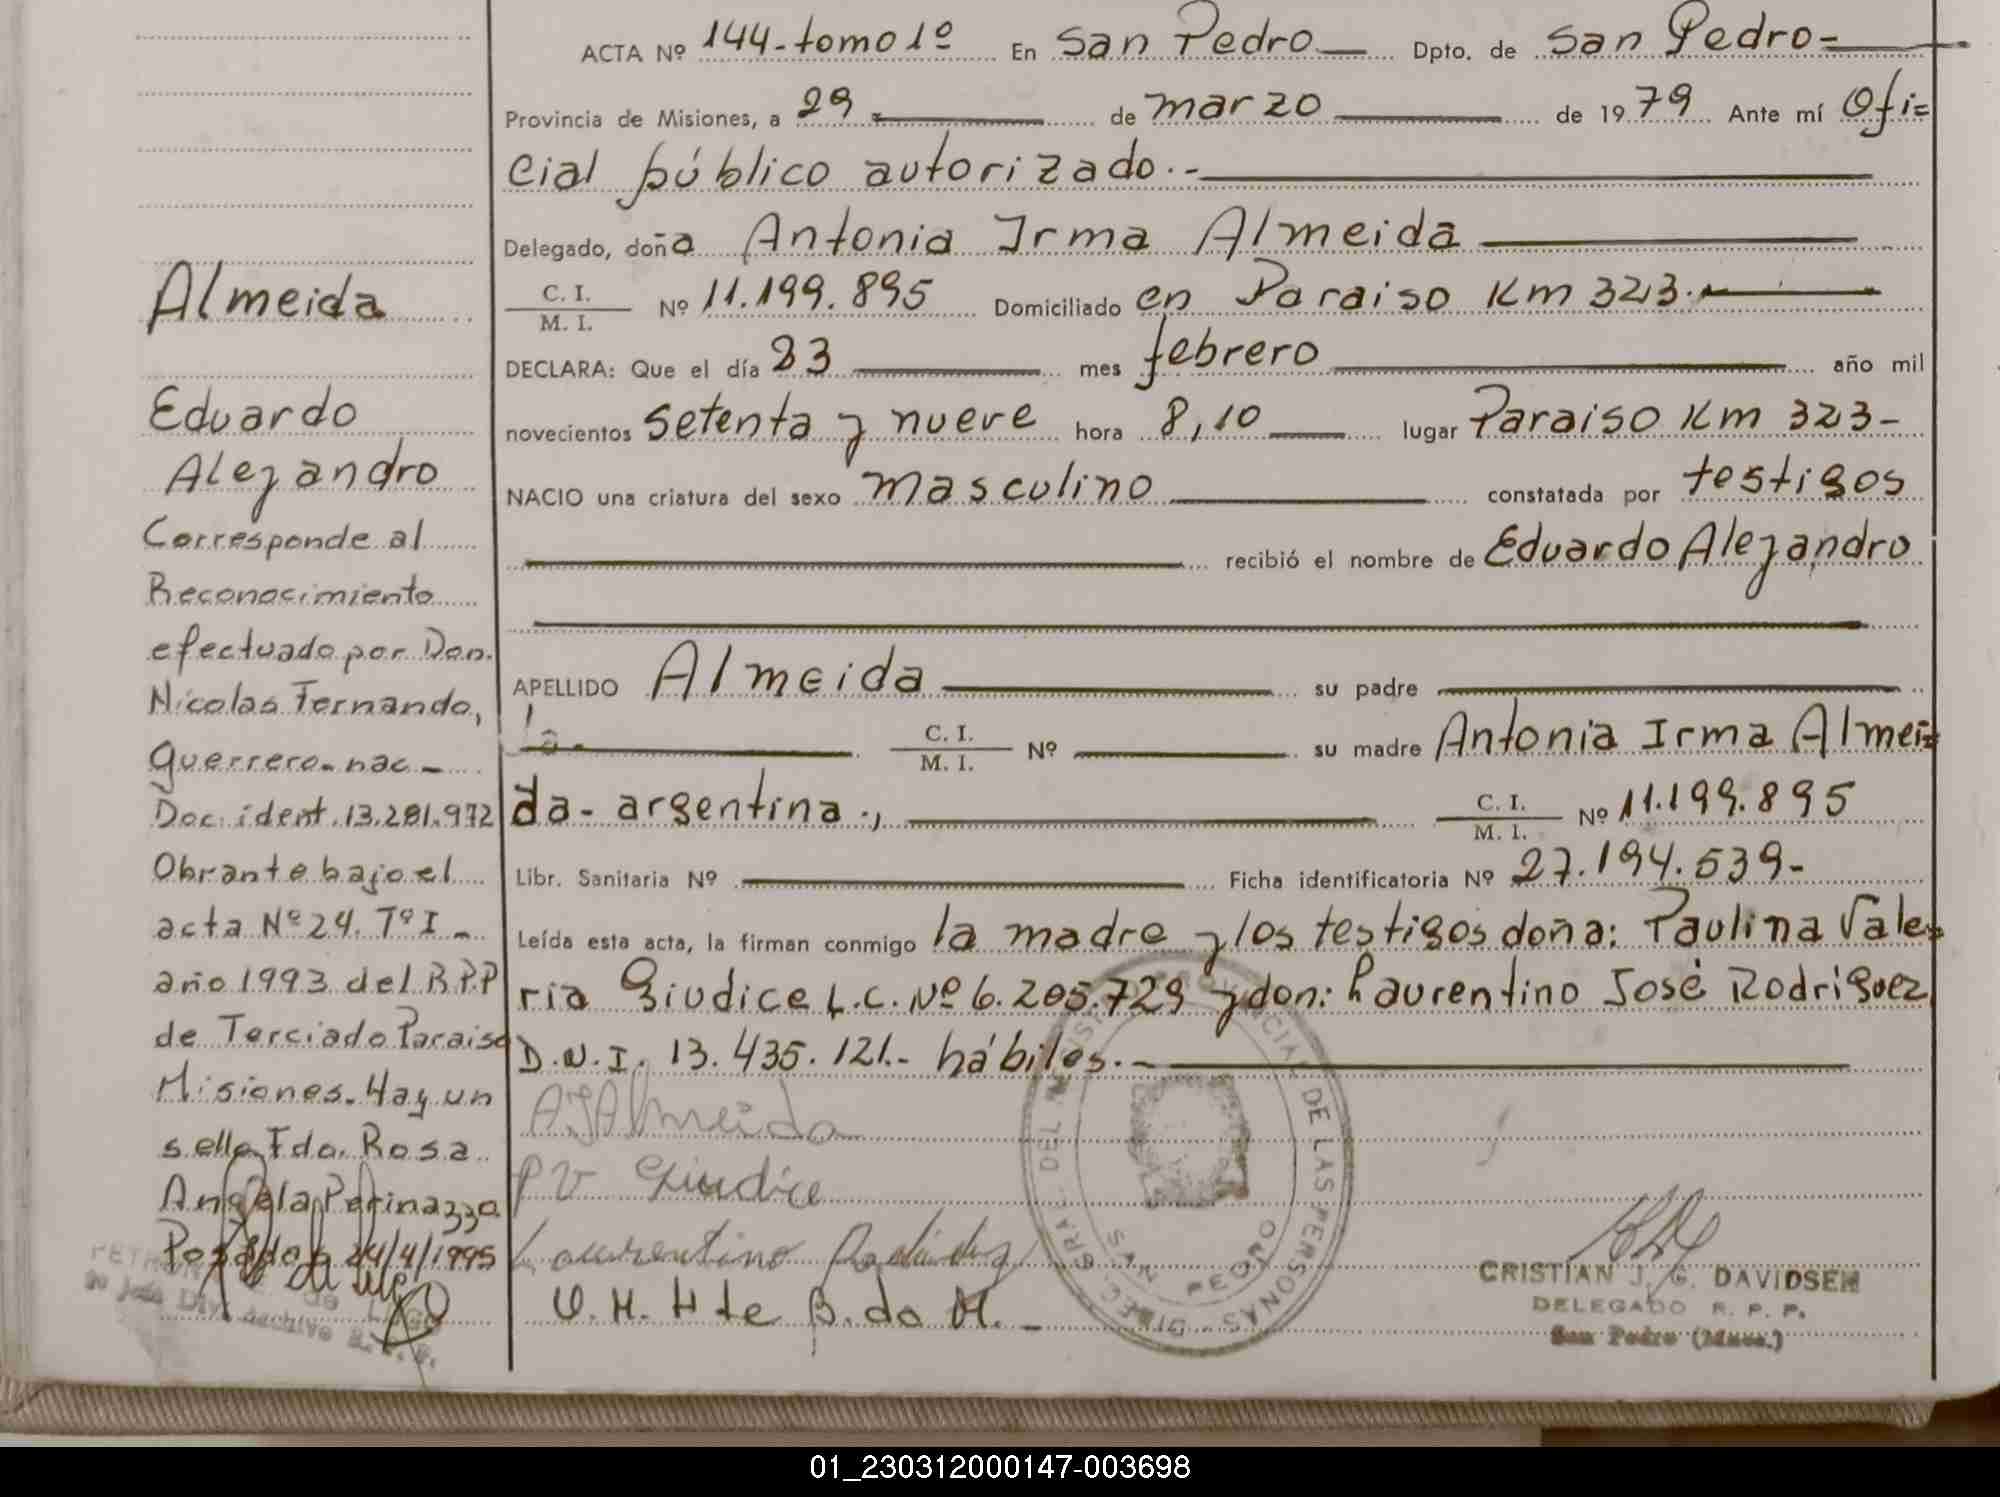 ACTA Nº 144-tomo 1º En San Pedro Dpto. de San Pedro-
Provincia de Misiones, a 29 de marzo de 1979 Ante mí Ofi=
cial público autorizado.-
Delegado, doña Antonia Irma Almeida
C. I.
M. I.
Nº 11.199.895 Domiciliado en Paraiso Km 323.
DECLARA: Que el día 23 mes febrero año mil
novecientos setenta y nueve hora 8,10 lugar Paraiso Km 323-
NACIO una criatura del sexo masculino constatada por testigos
recibió el nombre de Eduardo Alejandro
APELLIDO Almeida su padre
C. I.
M. I.
Nº su madre Antonia Irma Almei=
da- argentina.,
C. I.
M. I.
Nº 11.199.895
Libr. Sanitaria Nº Ficha identificatoria Nº 27.194.539-
Leída esta acta, la firman conmigo la madre y los testigos doña: Paulina Vale=
ria Giudice L.C. Nº 6.205.729 y don: Laurentino José Rodriguez
D.N.I. 13.435.121.- hábiles.-
A.I Almeida
PV Giudice
Laurentino Rodriguez
Almeida
Eduardo
Alejandro
Corresponde al
Reconocimiento
efectuado por Don.
Nicolas Fernando,
Guerrero-nac-
Doc. ident. 13.281.972
Obrante bajo el
acta Nº 24. Tº I-
año 1993 del R.P.P
de Terciado Paraiso
Misiones. Hay un
sello Fdo. Rosa
Angela Perinazzo
Posadas 24/4/1995
DIREC. GRAL. DEL REGISTRO PROVINCIAL DE LAS PERSONAS
SAN PEDRO
CRISTIAN J. G. DAVIDSEN
DELEGADO R. P. P.
San Pedro (Mnes.)
01_230312000147-003698